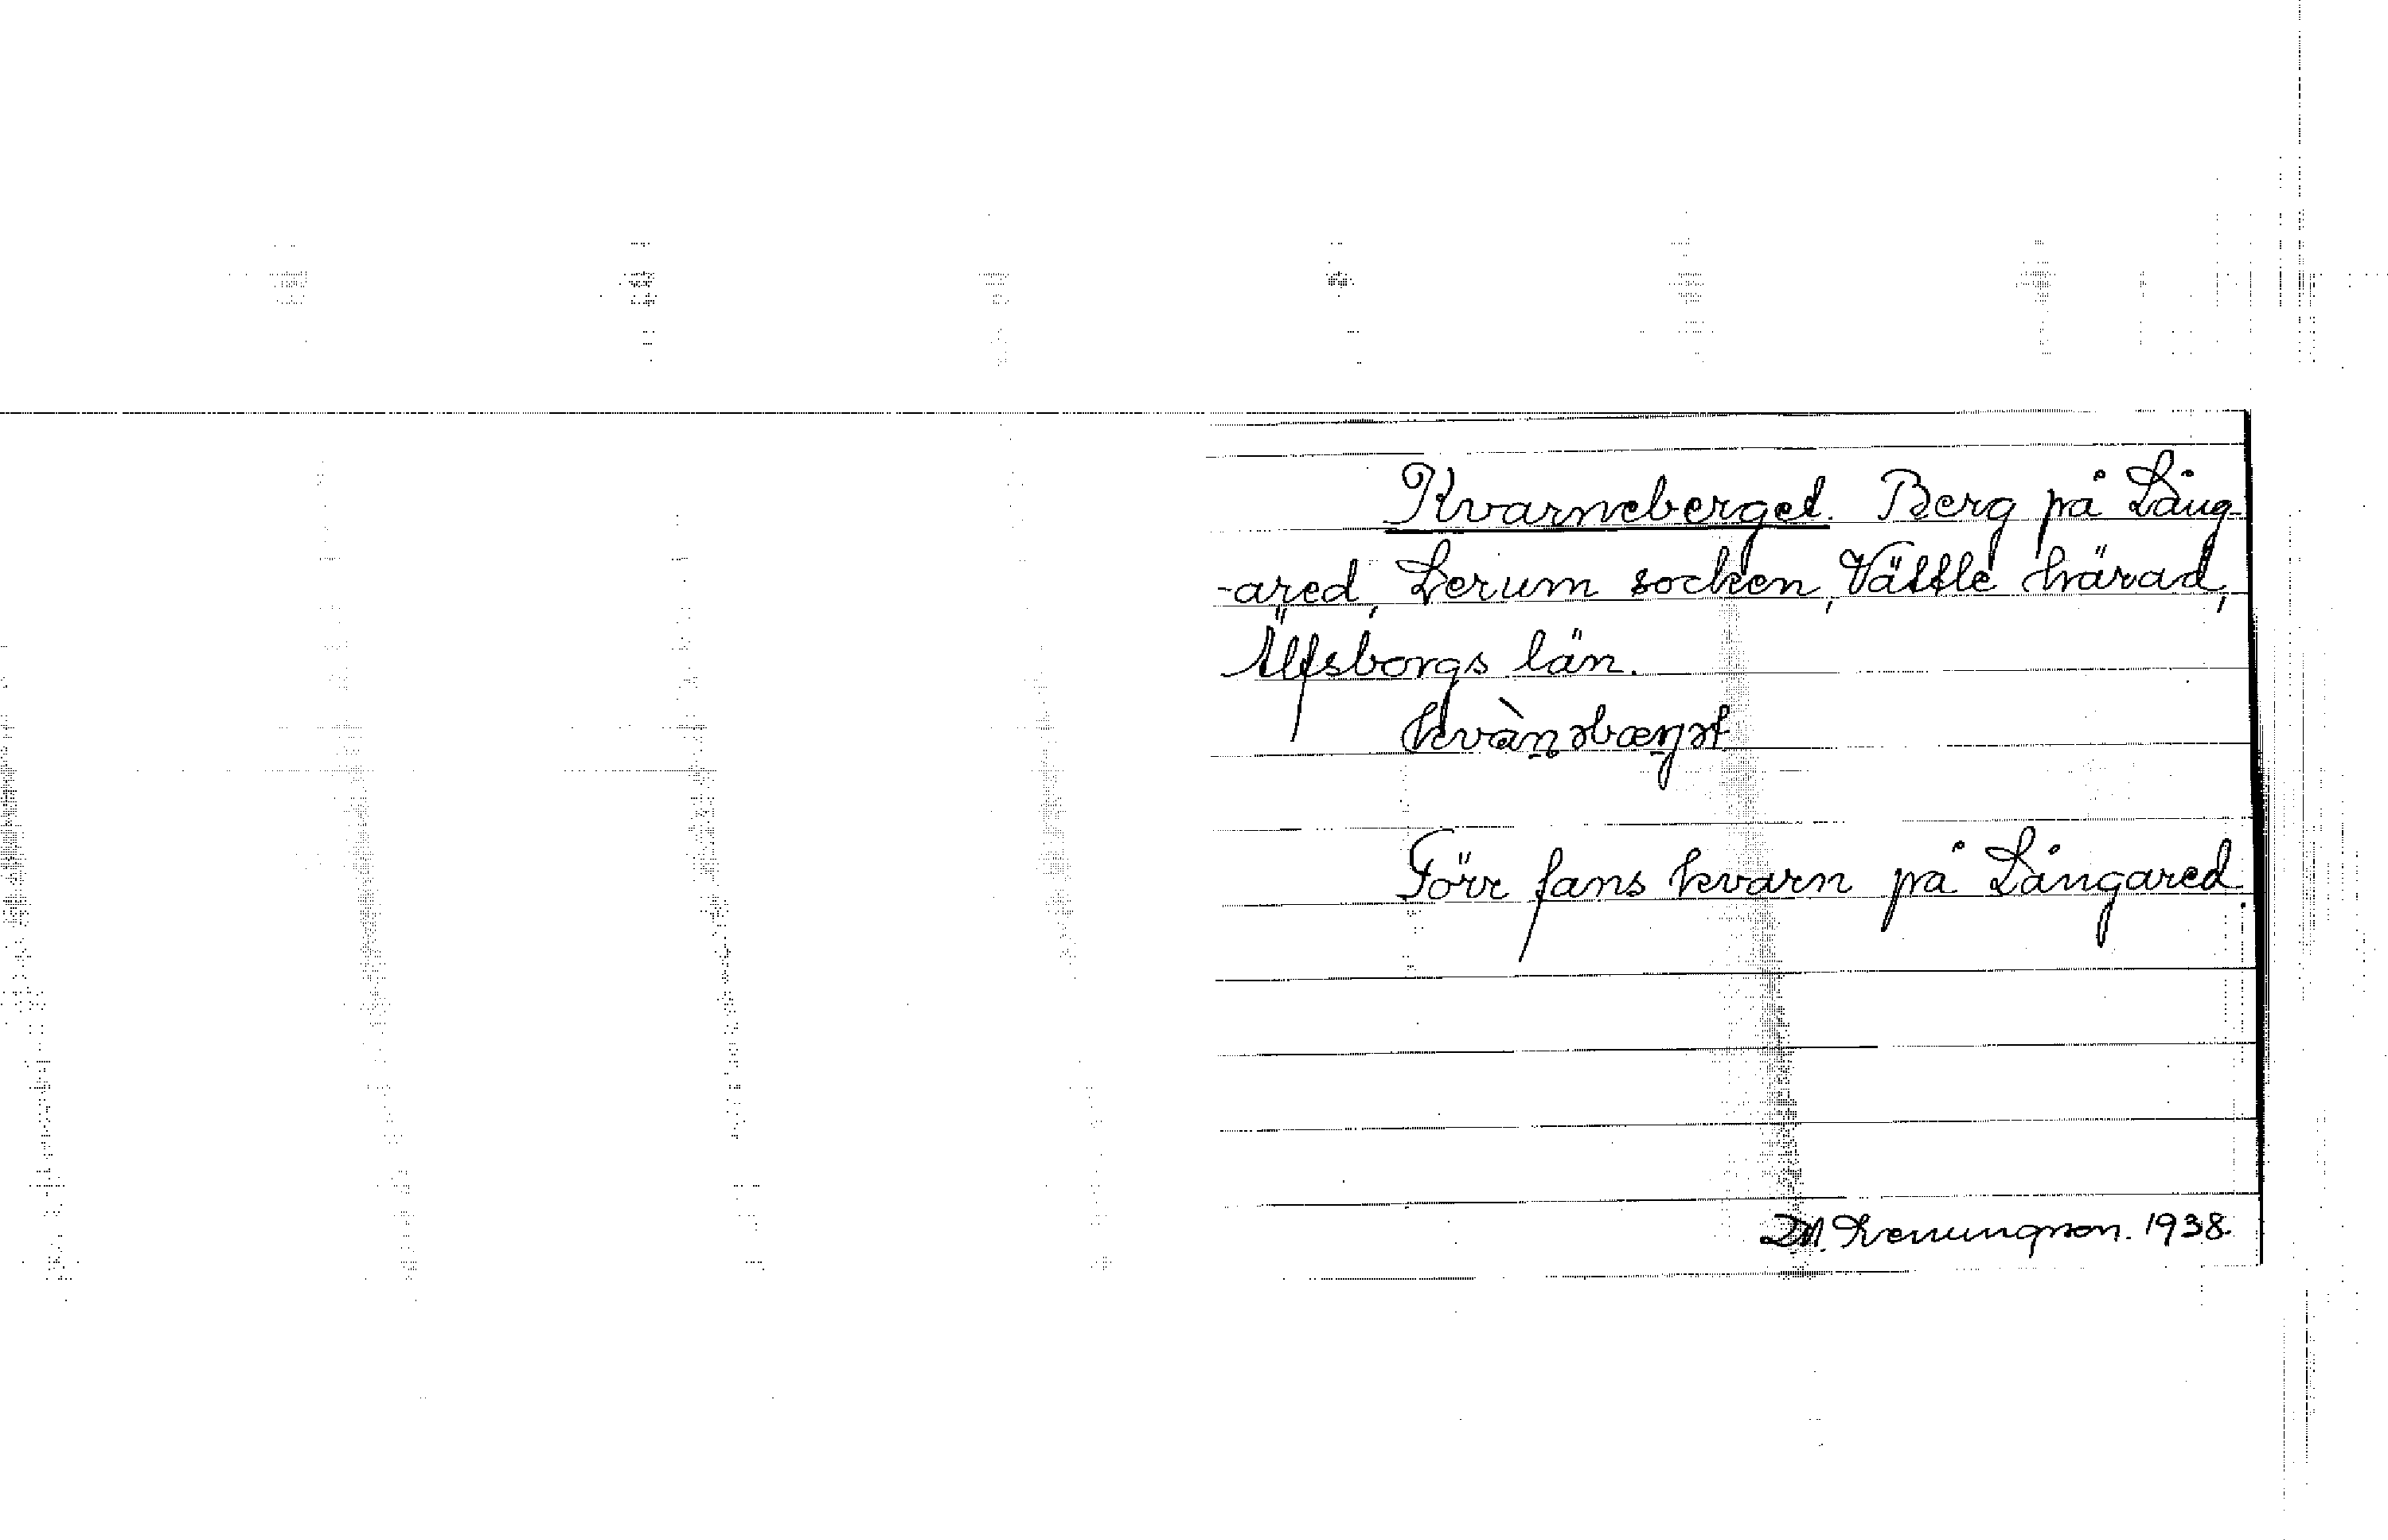 Kvarneberget. Berg på Lång-
-ared, Lerum socken, Vättle härad,
Älfsborgs län.
kvànəbærjət
Förr fans kvarn på Långared.
1938.